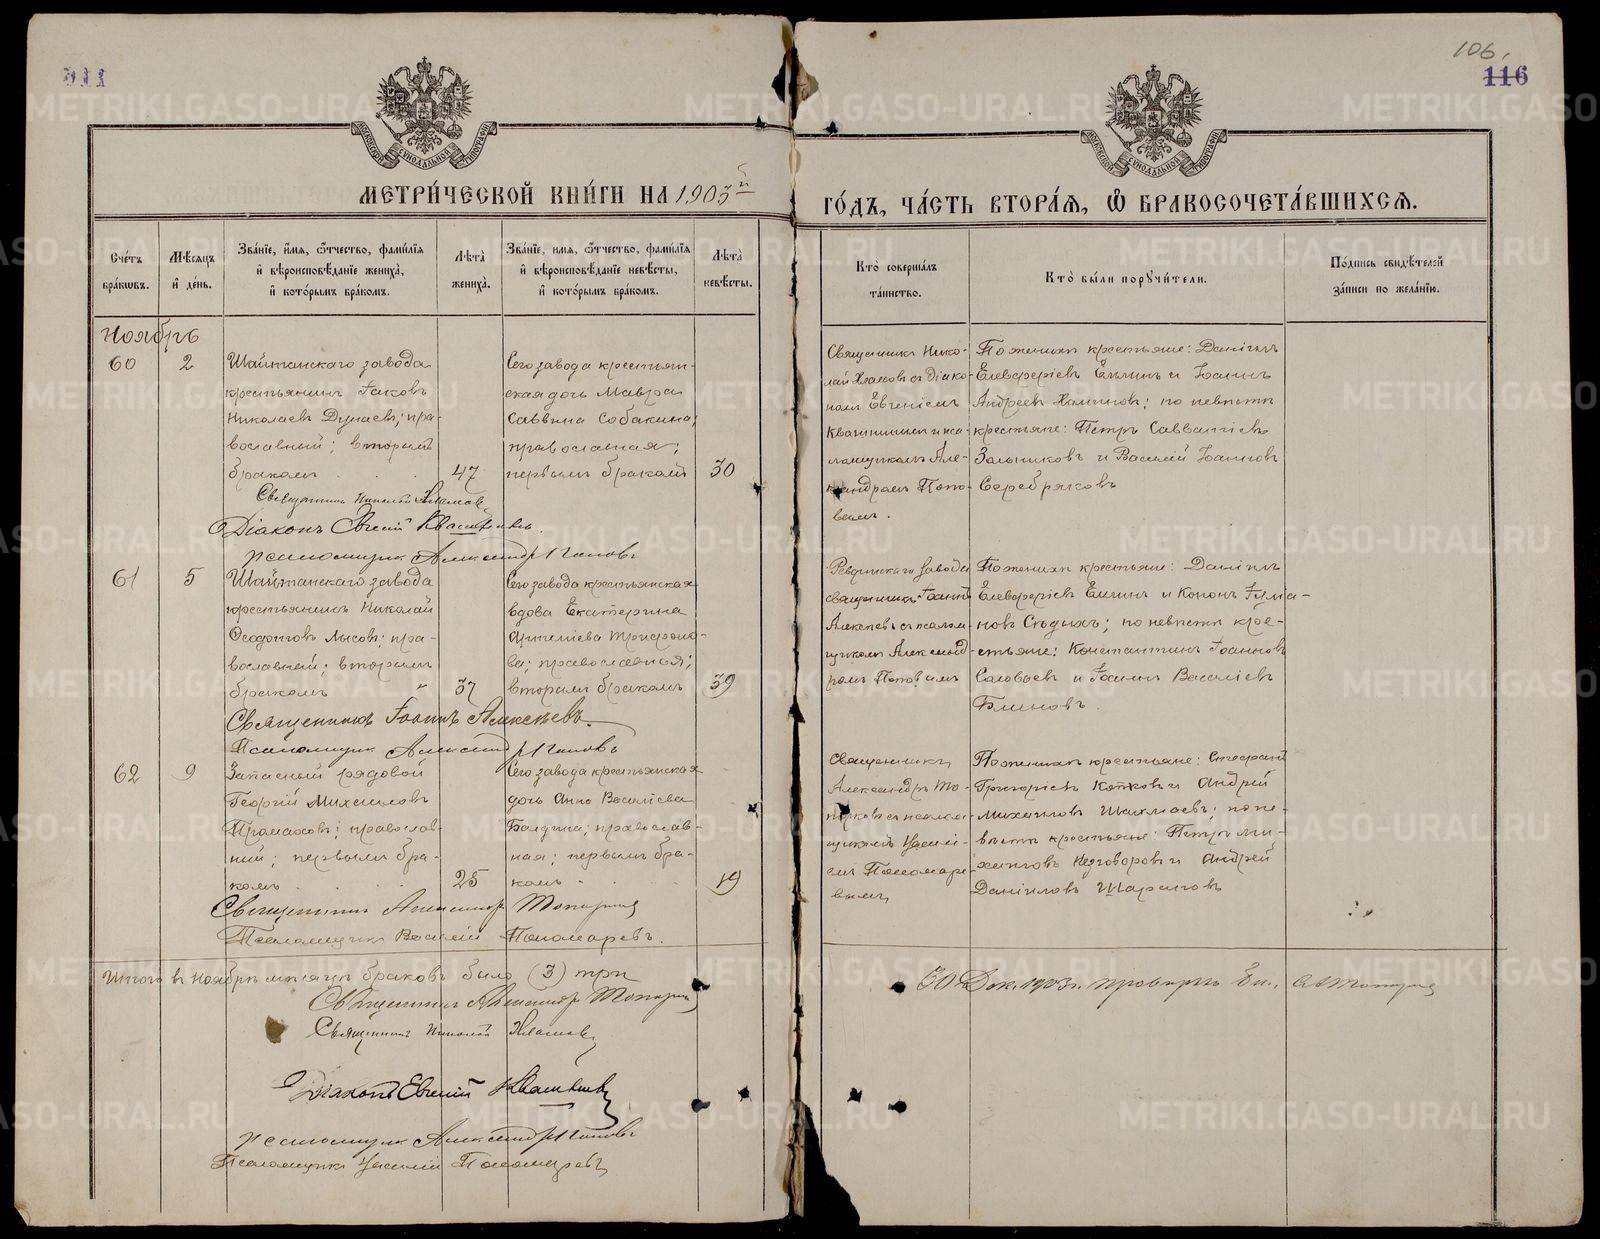 106.
116
МЕТРИ́ЧЕСКОЙ КНИ́ГИ НА 1903й
ГО́ДЪ, ЧА́СТЬ ВТОРА́Я, Ѡ БРАКОСОЧЕТА́ВШИХСЯ.
Сче́тъ бра́кωвъ.
Мѣ́сяцъ и҆ де́нь.
Зва́нїе, и҆́мя, ѻ҆́тчество, фами́лїя и҆ вѣроисповѣ́данїе жениха̀, и҆ кото́рымъ бра́комъ.
Лѣ́та жениха̀.
Зва́нїе, и҆́мя, ѻ҆́тчество, фами́лїя и҆ вѣроисповѣ́данїе невѣ́сты, и҆ кото́рымъ бра́комъ.
Лѣ́та невѣ́сты.
Кто̀ соверша́лъ та́инство.
Кто̀ бы́ли поручи́тели.
По́дпись свидѣ́телей за́писи по жела́нїю.
Ноябрь
60
2
Шайтанскаго завода
крестьянинъ Іаковъ
Николаевъ Дунаевъ; пра-
вославный; вторымъ
бракомъ
47
Сего завода крестьян-
ская дочь Мавра
Саввина Собакина;
православная;
первымъ бракомъ
30
Священникъ Нико-
лай Хламовъ съ діако-
номъ Евгеніемъ
Квашнинымъ и пса-
ломщикомъ Але-
ксандромъ Попо-
вымъ.
По женихѣ крестьяне: Даніилъ
Елевферіевъ Ёлкинъ и Іоаннъ
Андреевъ; по невѣстѣ
крестьяне: Петръ Савватіевъ
Зольниковъ и Василій Іоанновъ
Серебряковъ
Священникъ Николай Хламовъ
Діаконъ Евгеній Квашнинъ.
Псаломщикъ Александръ Поповъ
61
5
Шайтанскаго завода
крестьянинъ Николай
Ѳеодотовъ Лысовъ; пра-
вославный; вторымъ
бракомъ "
37
Сего завода крестьянская
вдова Екатерина
Трифоно-
ва; православная;
вторымъ бракомъ
39
Ревдинскаго завода
священникъ Іоаннъ
Алексѣевъ съ псалом-
щикомъ Александ-
ромъ Поповымъ
По женихѣ крестьяне: Даніилъ
Елевферіевъ Ёлкинъ и Кононъ
Сѣдыхъ; по невѣстѣ кре-
стьяне: Константинъ Іоанновъ
Соловьевъ и Іоаннъ Василіевъ
Блиновъ.
Священникъ Іоаннъ Алексѣевъ.
Псаломщикъ Александръ Поповъ
62
9
Запасный рядовой
Георгій Михаиловъ
православ-
ный; первымъ бра-
комъ
25
Сего завода крестьянская
дочь Анна Василіева
Болдина; православ-
ная; первымъ бра-
комъ
19
Священникъ
Александръ То-
порковъ съ псалом-
щикомъ Василі-
емъ Пономаре-
вымъ
По женихѣ крестьяне: Стефанъ
Григоріевъ и Андрей
Михаиловъ; по не-
вѣстѣ крестьяне: Петръ Ми-
хаиловъ и Андрей
Даніиловъ
Священникъ Александръ Топорковъ
Псаломщикъ Василій Пономаревъ.
Итого въ Ноябрѣ мѣсяцѣ браковъ было (3) три
Священникъ Александръ Топорковъ
Священникъ Николай Хламовъ
Діаконъ Евгеній Квашнинъ
Псаломщикъ Александръ Поповъ
Псаломщикъ Василій Пономаревъ
30 Дек. 1903 г.
METRIKI.GASO-URAL.RU